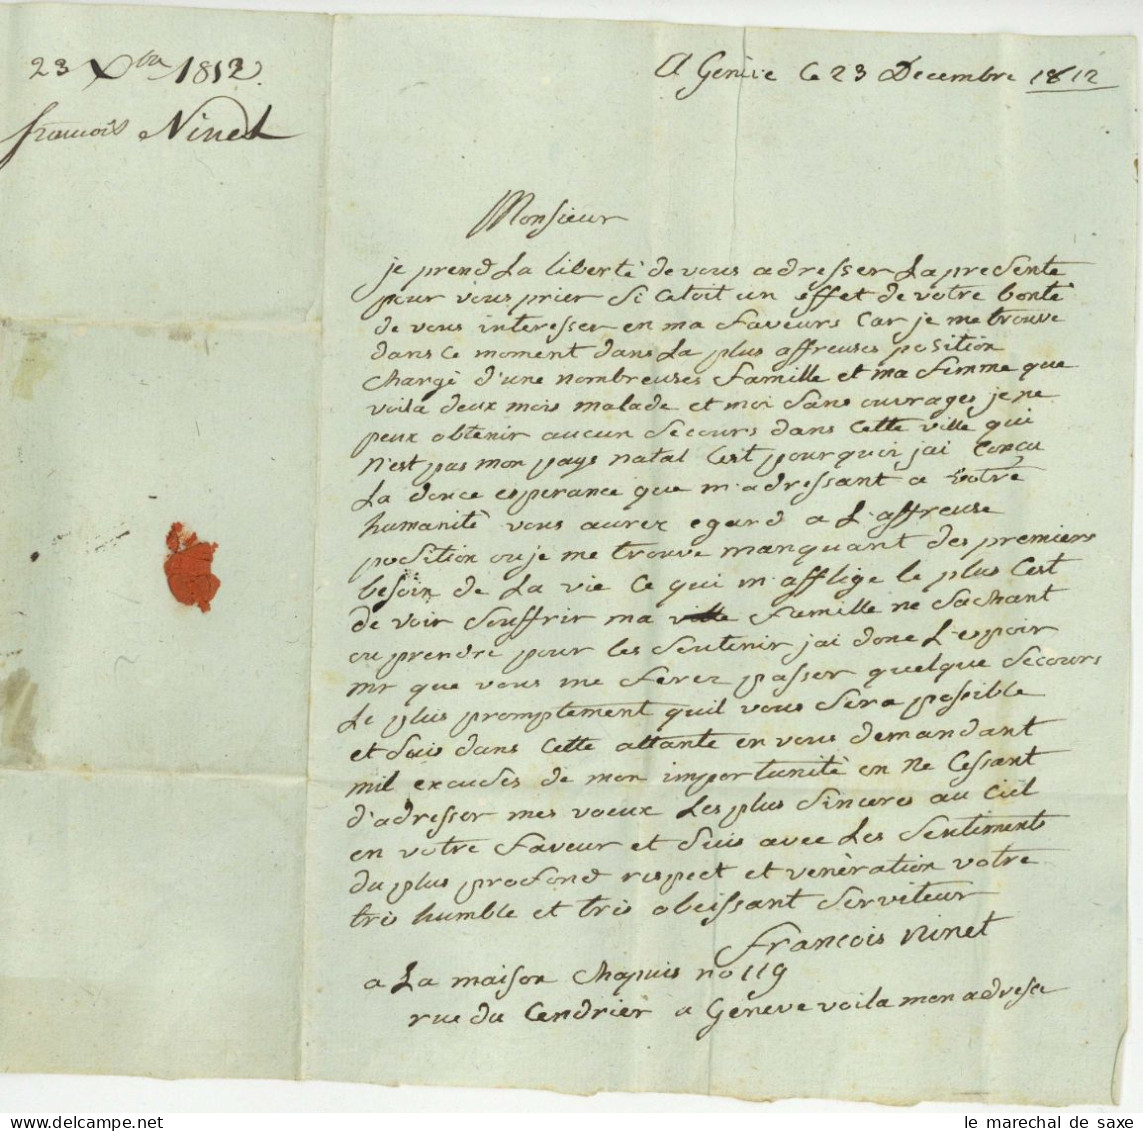 23 Xbre 1812
francois Ninet
A Genève Ce 23 Decembre 1812
Monsieur
je prend La liberté de vous adresser La presente
pour vous prier Si Cetoit un effet de votre bonté
de vous interesser en ma faveurs Car je me trouve
dans Ce moment dans La plus affreuses position
Chargé d'une nombreuses famille et ma femme que
voila deux mois malade et moi Sans ouvrages je ne
peux obtenir aucun Secours dans Cette ville qui
n'est pas mon pays natal C'est pourquoi jai Concu
La douce esperance que m'adressant a votre
humanité vous aurez egard a L'affreuse
position ou je me trouve manquant des premiers
besoin de La vie Ce qui m'afflige le plus C'est
de voir Souffrir ma famille ne Sachant
ou prendre pour les Soutenir jai donc L'espoir
mr que vous me ferez passer quelque Secours
Le plus promptement quil vous Sera possible
et Suis dans Cette attante en vous demandant
mil excuses de mon importunité en Ne Cessant
d'adresser mes voeux Les plus Sinceres au Ciel
en votre faveur et Suis avec Les Sentiments
du plus profond respect et venération votre
tres humble et tres obeissant Serviteur
francois Ninet
a La maison Chapuis no 119
rue du Cendrier a Geneve voila mon adresse
le marechal de saxe